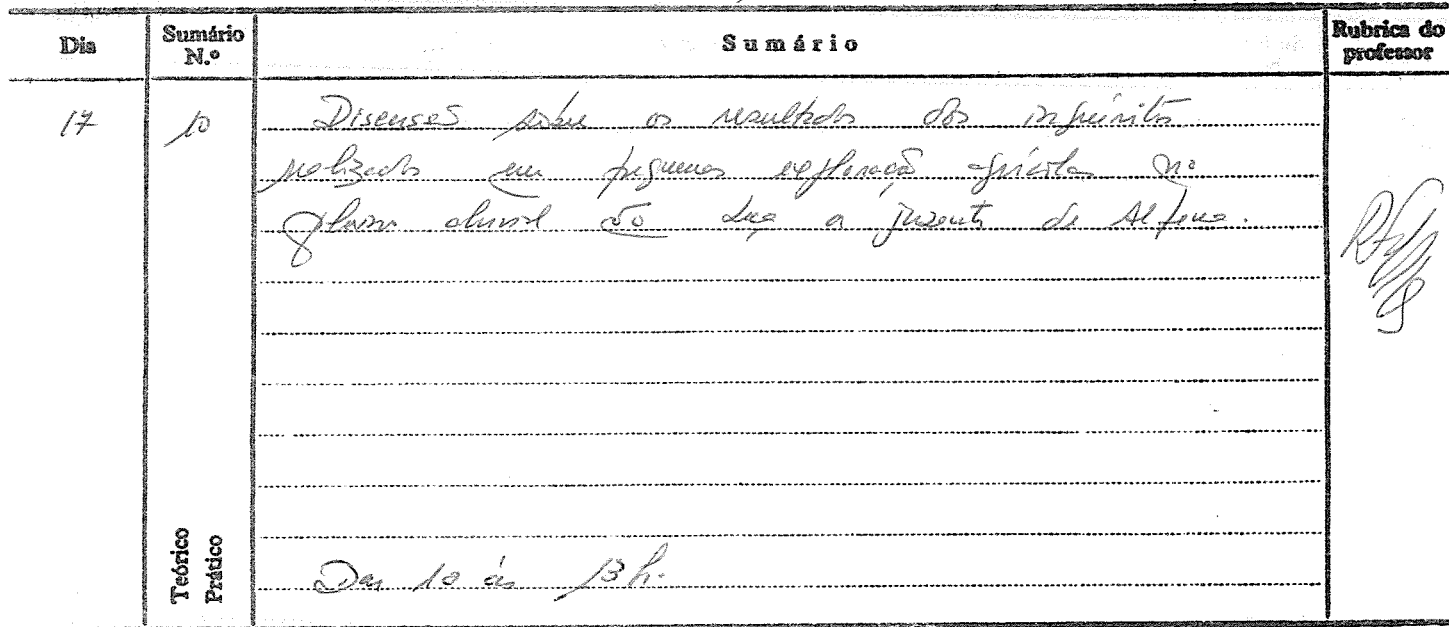 Dia
Sumário N.º
Sumário
Rubrica do professor
17
10
Discussão sobre os resultados dos inquéritos
realizados em pequenas exploração agrícolas na
a jusante de
Teórico
Prático
Das 10 às 13 h.